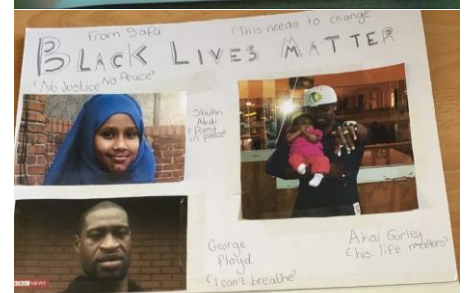 From Safa
'This needs to change'
BLACK LIVES MATTER
'No Justice No Peace'
Shukri
Abdi
'Rest
in peace'
George
Floyd
'I can't breathe'
Akai Gurley
'his life matters'
BBC NEWS